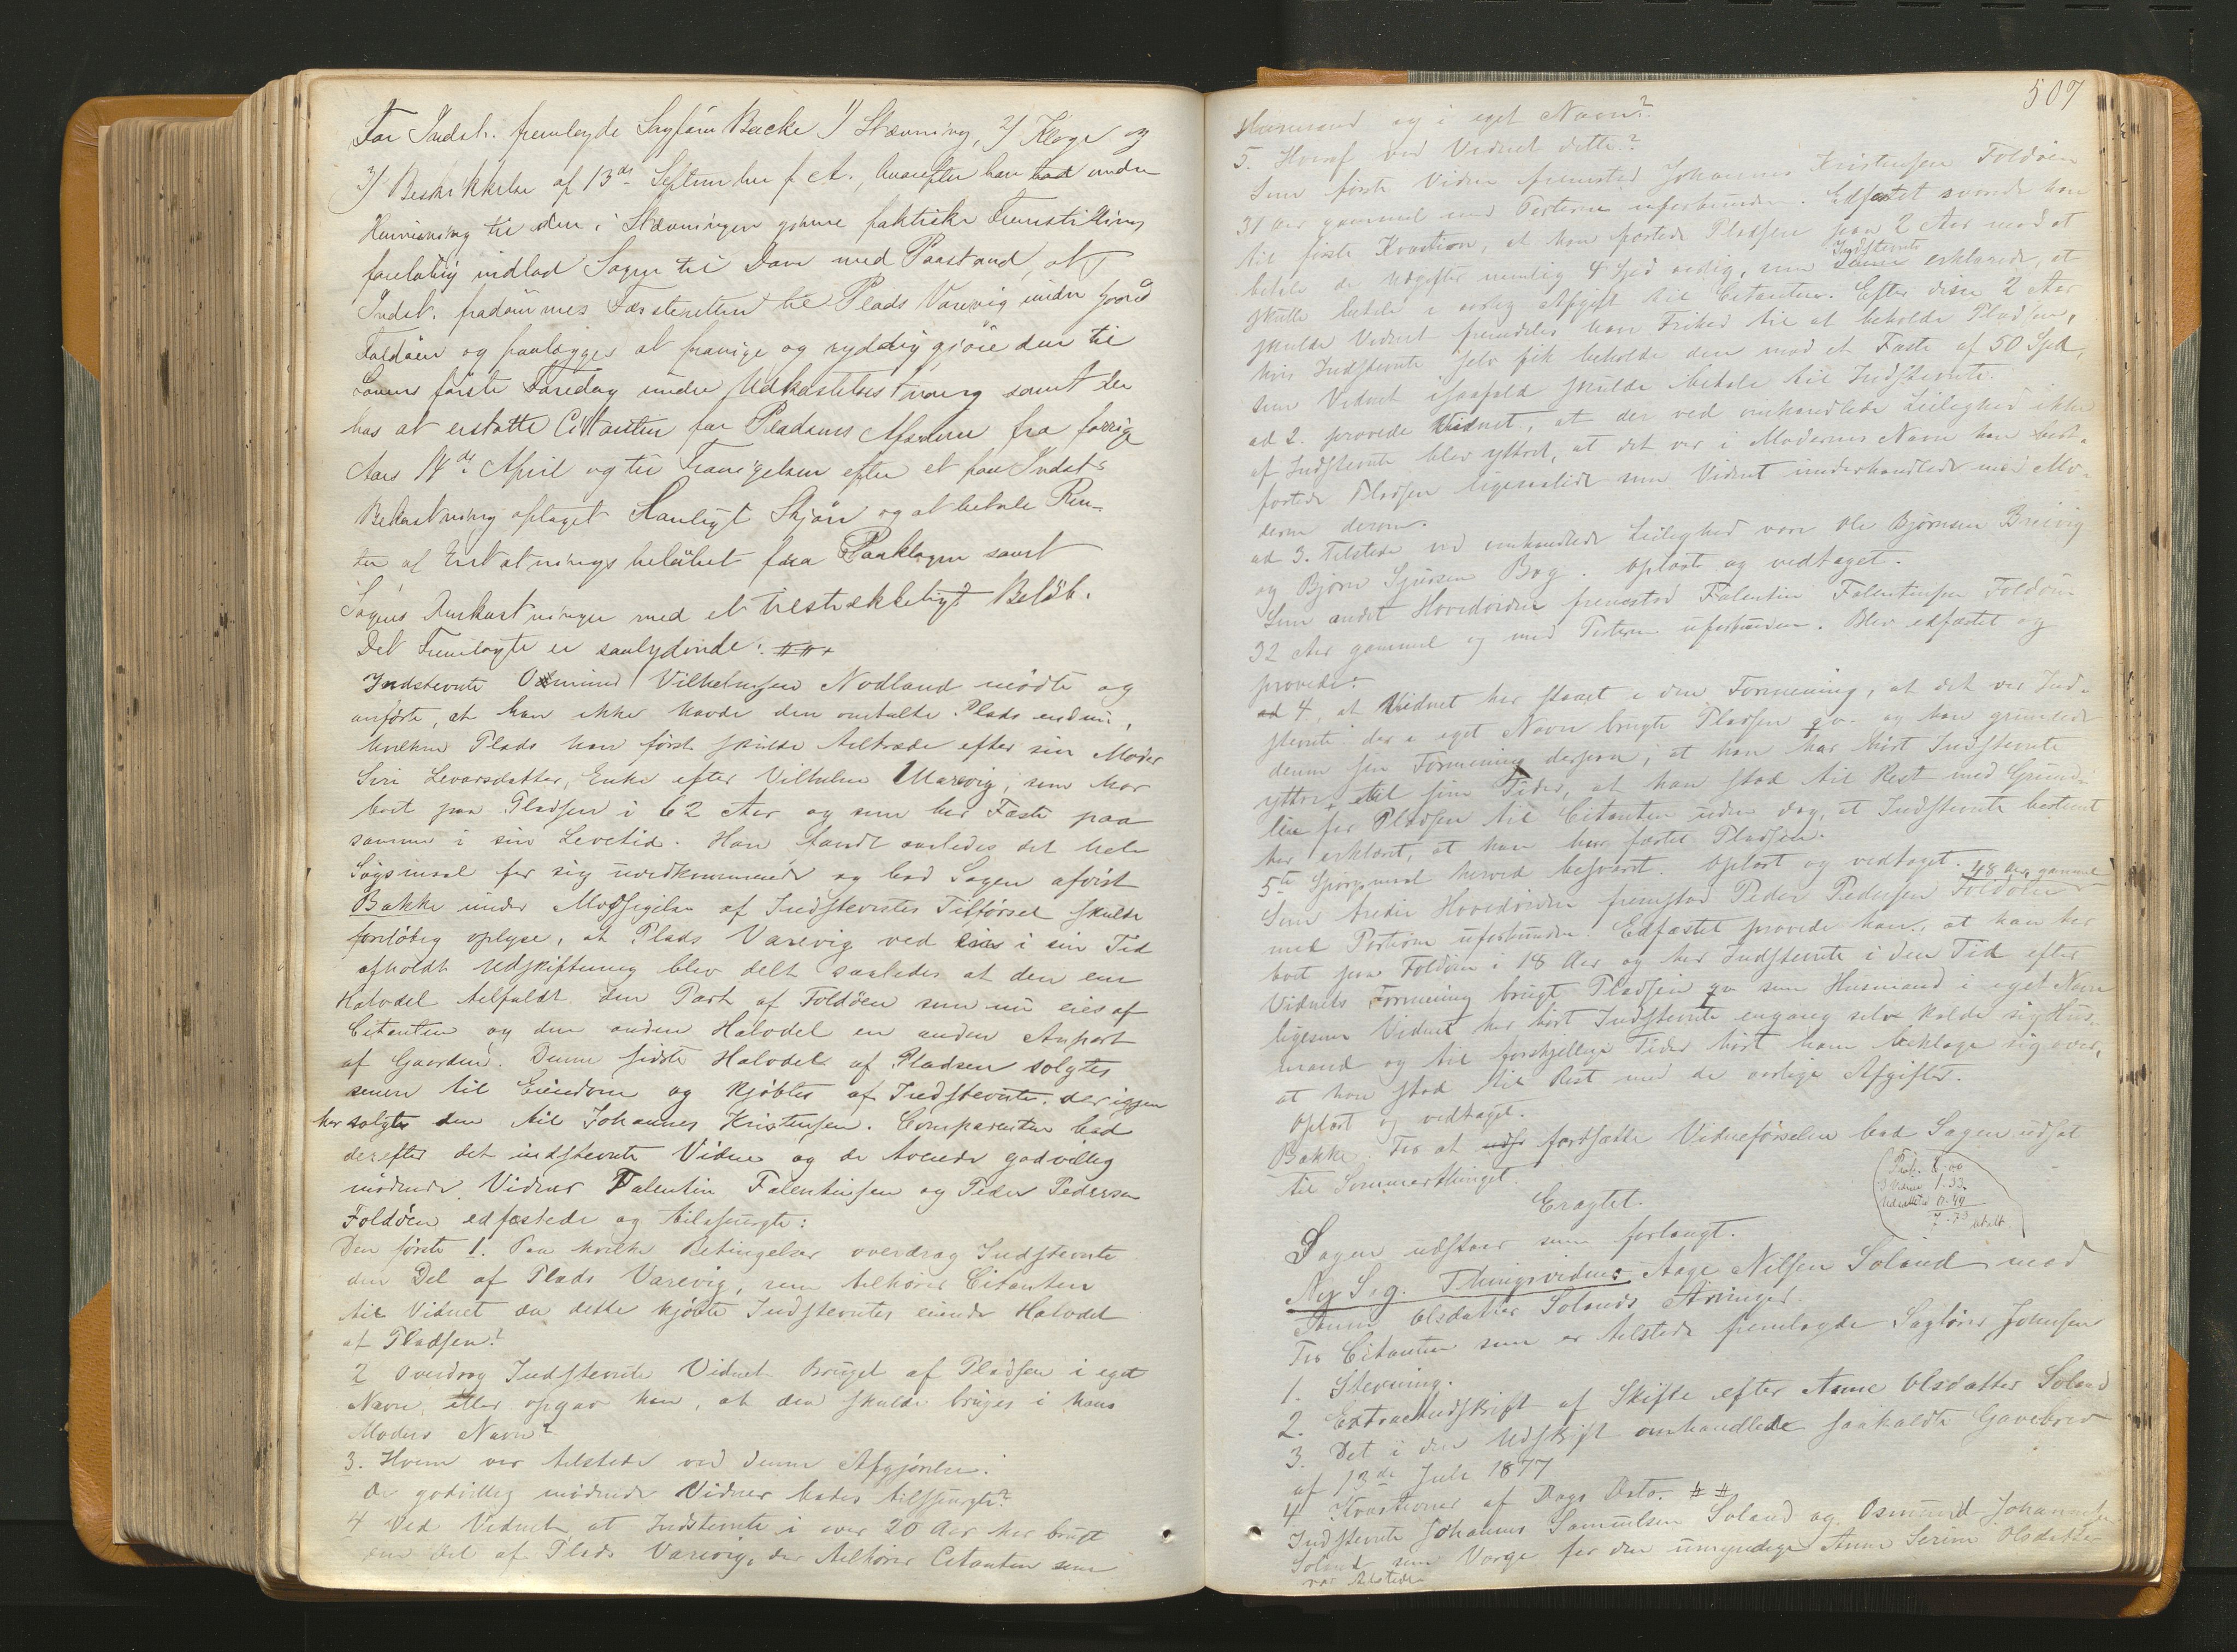 For Indst. fremlagde Sagfører Bakke 1/ Stævning, 2/ Klage og
3/ Beskikkelse af 13de September f. A., hvorefter han bad under
Henvisning til den i Stævningen givne faktiske Fremstilling
foreløbig indlod Sagen til Dom med Paastand, at
Indst. fradømmes Fæsteretten til Plads Varevig under Gaard
Foldøen og paalægges at fravige og ryddiggjøre den til
Lovens første Faredag under Udkastelses Tvang samt der
hos at erstatte Citantin for Pladsens Afsavn fra forrige
Aars 14de April og til Fravigelsen efter et paa Indsts
Bekostning optaget Lovligt Skjøn og at betale Ren-
ter af Erstatningsbeløbet fra Paaklagen samt
Sagens Omkostninger med et tilstrækkeligt Beløb.
Det Fremlagte er saalydende: ##.
Indstevnte Osmund Vilhelmsen Nodland mødte og
anførte, at han ikke havde den omtalte Plads endnu,
hvilken Plads han først skulde tiltræde efter sin Moder
Siri Levarsdatter, Enke efter Vilhelm Varevig, som har
boet paa Pladsen i 62 Aar og som har Fæste paa
samme i sin Levetid. Han fandt saaledes det hele
Søgsmaal for sig uvedkommende og bad Sagen afvist
Bakke under Modsigelse af Indstevntes Tilførsel skulde
foreløbig oplyse, at Plads Varevig ved en i sin Tid
afholdt Udskiftning blev delt saaledes at den ene
Halvdel tilfaldt den Part af Foldøen som nu eies af
Citanten og den anden Halvdel en anden Anpart
af Gaarden. Denne sidste Halvdel af Pladsen solgtes
senere til Eiendom og kjøbtes af Indstevnte, der igjen
har solgt den til Johannes Kristensen. Comparenten bad
derefter det indstevnte Vidne og de tvende godvillig
mødende Vidner Falentin Falentinsen og Peder Pedersen
Foldøen edfæstede og tilspurgte:
Den første 1. Paa hvilke Betingelser overdrog Indstevnte
den Del af Plads Varevig, som tilhører Citanten
til Vidnet da dette kjøbte Indstevntes eiende Halvdel
af Pladsen?
2 Overdrog Indstevnte Vidnet Bruget af Pladsen i eget
Navn, eller opgav han, at den skulde bruges i hans
Moders Navn?
3. Hvem var tilstede ved denne Afgjørelse.
De godvillig mødende Vidner bades tilspurgte?
4 Ved Vidnet at Indstevnte i over 20 Aar har brugt
den Del af Plads Varevig, der tilhører Citanten som
507
Husmand og i eget Navn?
5. Hvoraf ved Vidnet dette?
Som første Vidne fremstod Johannes Kristensen Foldøen
31 Aar gammel med Parterne uforbunden. Edfæstet svarede han
til første Kvæstion, at han fæstede Pladsen paa 2 Aar mod at
betale de Udgifter nemlig 4 Spd aarlig, som Indstevnte erklærede, at
skulle betale i aarlig Afgift til Citanten. Efter disse 2 Aar
skulde Vidnet fremdeles have Frihed til at beholde Pladsen,
hvis Indstevnte selv fik beholde den mod et Fæste af 50 Spd,
som Vidnet isaafald skulde betale til Indstevnte.
ad 2. provede Vidnet, at der ved omhandlede Leilighed ikke
af Indstevnte blev yttret, at det var i Moderens Navn han bort-
fæstede Pladsen ligesaalidt som Vidnet underhandlede med Mo-
deren derom.
ad 3. Tilstede ved omhandlede Leilighed vare Ole Bjørnsen Breivig
og Bjørn Sjursen Bog. Oplæst og vedtaget.
Som andet Hovedvidne fremstod Falentin Falentinsen Foldøen
32 Aar gammel og med Parterne uforbunden. Blev edfæstet og
provede:
ad 4, at Vidnet har staaet i den Formening, at det var Ind-
stevnte der i eget Navn brugte Pladsen qv. og han grundede
denne sin Formening derpaa, at han har hørt Indstevnte
yttre til sine Tider, at han stod til Rest med Grund-
leie for Pladsen til Citanten uden dog, at Indstevnte bestemt
har erklæret, at han har fæstet Pladsen.
5te Spørgsmaal herved besvaret. Oplæst og vedtaget.
Som tredie Hovedvidne fremstod Peder Pedersen Foldøen 48 Aar gammel
med Parterne uforbunden. Edfæstet provede han, at han har
boet paa Foldøen i 18 Aar og har Indstevnte i den Tid efter
Vidnets Formening brugt Pladsen qv som Husmand i eget Navn
ligesom Vidnet har hørt Indstevnte engang selv kalde sig Hus-
mand og til forskjellige Tider hørt ham beklage sig over,
at han stod til Rest med de aarlige Afgifter.
Oplæst og vedtaget.
Bakke. For at fortsætte Vidneførselen bad Sagen udsat
til Sommerthinget.
Eragtet.
Sagen udstaar som forlangt.
1.33
0.40
betalt.
Ny Sag. Thingsvidne: Aage Nilsen Soland mod
Anne Olsdatter Solands Arvinger.
For Citanten som er tilstede fremlagde Sagfører Johnsen
1. Stevning.
2. Extractudskrift af Skifte efter Anne Olsdatter Soland
3. Det i den Udskrift omhandlede saakaldte Gavebrev
af 13de Juli 1877
4 Kvæstioner af Dags Dato. ##
Indstevnte Johannes Samuelsen Soland og Osmund Johannesen
Soland som Verge for den umyndige Anne Serine Olsdatter
var tilstede